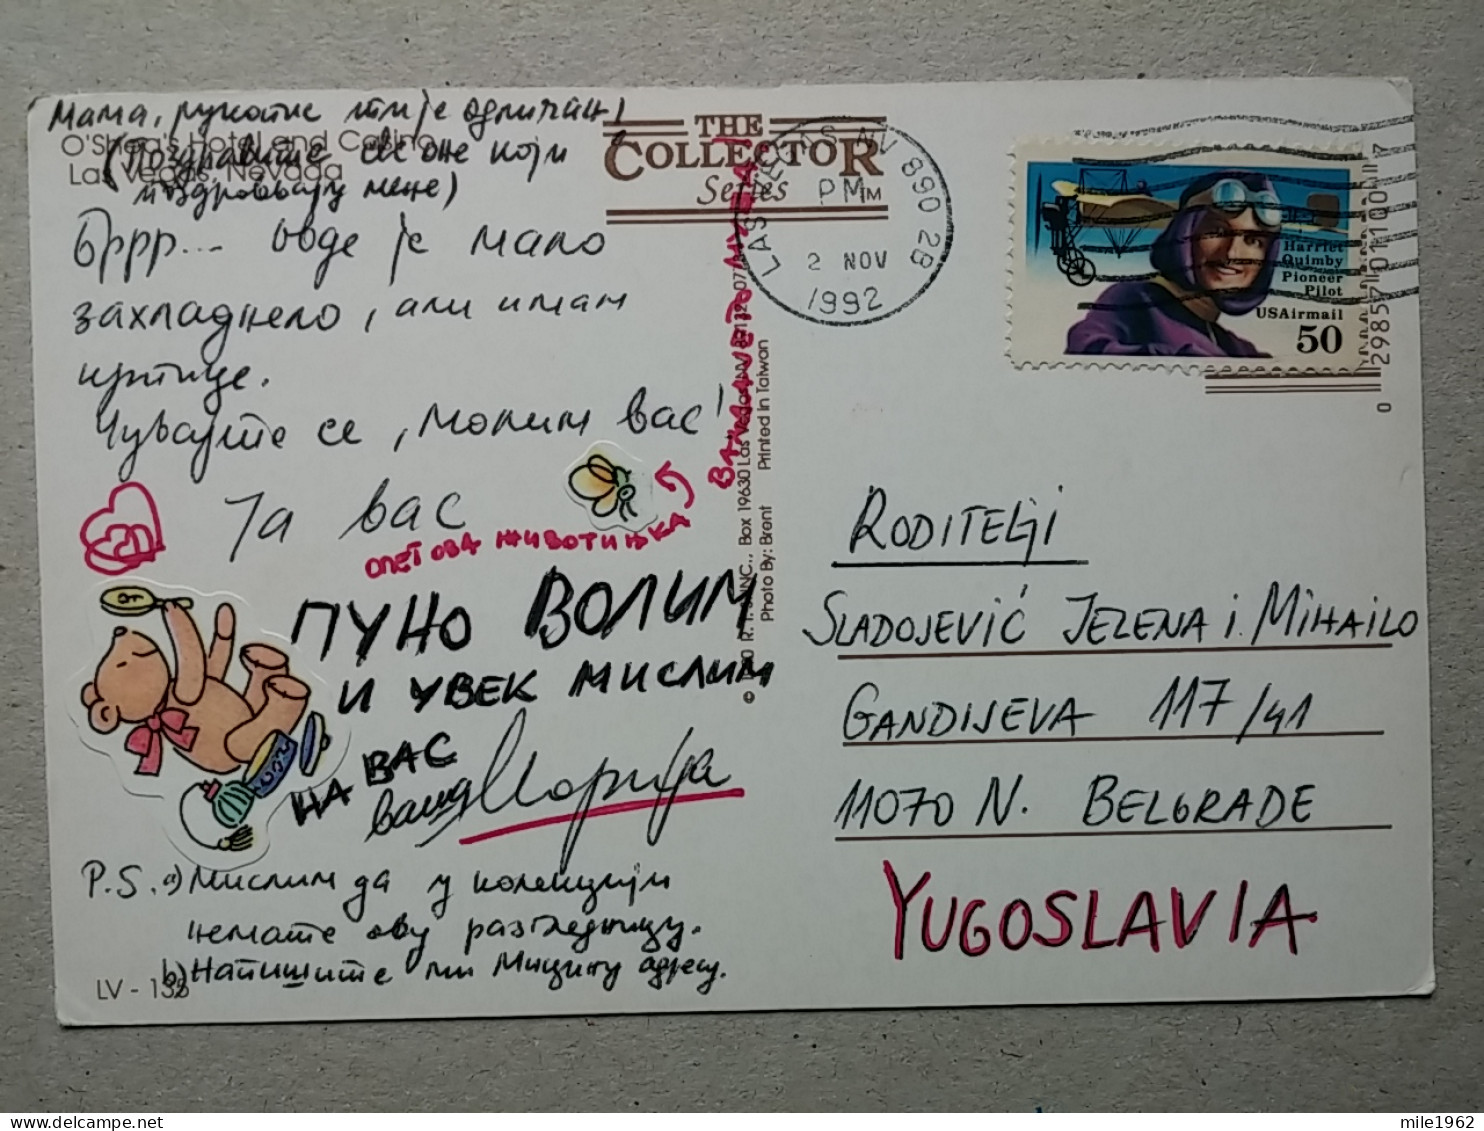 Мама, рукопис ти је одличан!
O'Shea's Hotel and Casino
(Поздравите све оне који
Las Vegas, Nevada
поздрављају мене)
Бррр... овде је мало
захладнело, али имам
цртице.
Чувајте се, молим вас!
Ја вас
ОПЕТ ОВА ЖИВОТИЊКА
ПУНО ВОЛИМ
И УВЕК МИСЛИМ
НА ВАС
ваша Марија
P.S. а) Мислим да у колекцији
немате ову разгледницу.
b) Напишите ми Мицину адресу.
LV - 138
THE
COLLECTOR
Series
Photo By: Brent Printed in Taiwan
LAS VEGAS NV 890 28
PM
2 NOV
1992
Harriet
Quimby
Pioneer
Pilot
USAirmail
50
RODITELJI
SLADOJEVIĆ JELENA i MIHAILO
GANDIJEVA 117/41
11070 N. BELGRADE
YUGOSLAVIA
mile1962